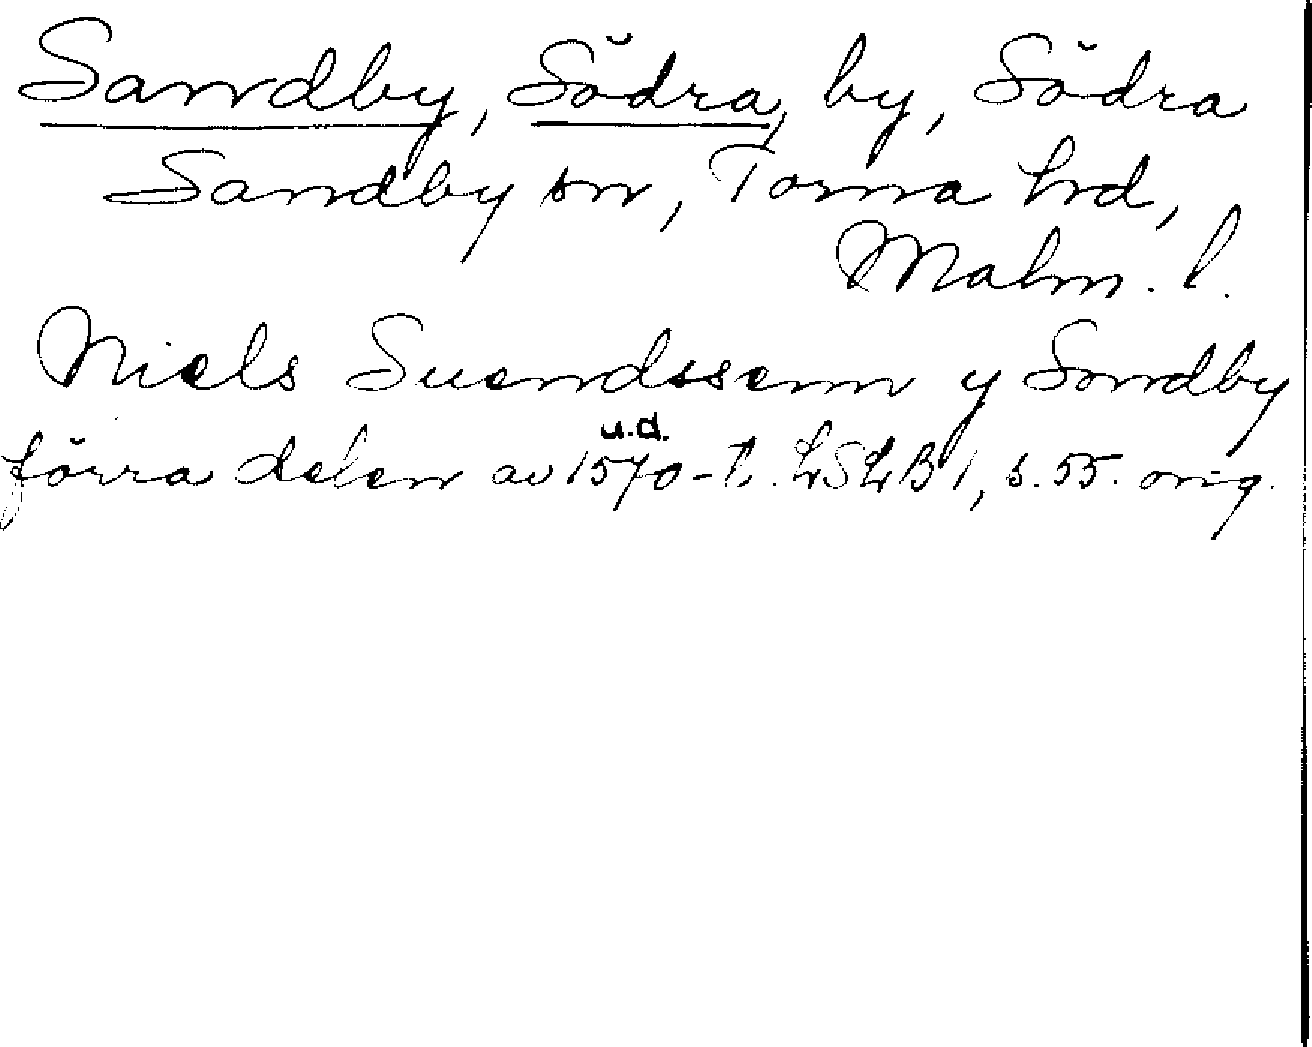 Sandby, Södra, by, Södra
Sandby sn, Torna hrd,
Malm. l.
Niels Suendssenn y Sandby
u.d.
förra delen av 1570-t. LSLB 1, s. 55. orig.